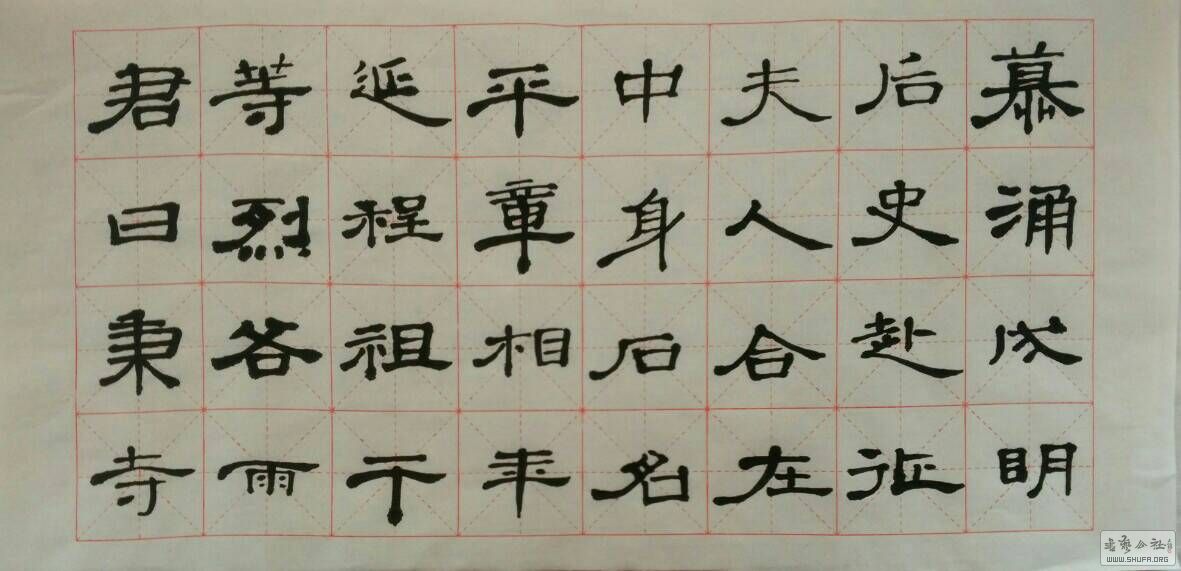 慕涌成明
后史赴征
夫人合在
中身石名
平章相年
延程祖干
等烈各雨
君曰秉寺
书艺公社
WWW.SHUFA.ORG